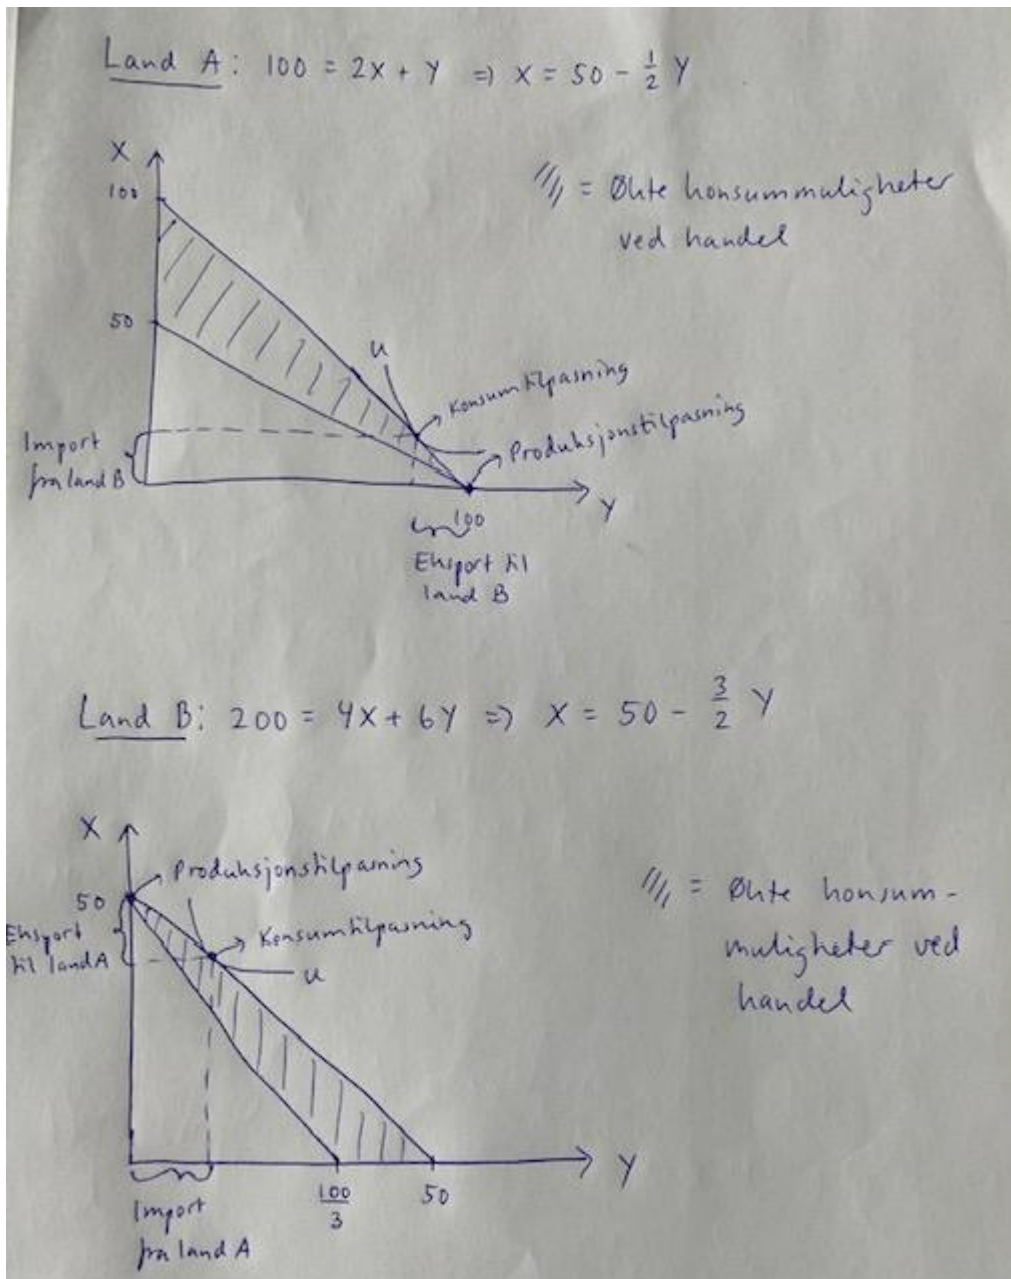 Land A: 100 = 2X + Y => X = 50 - 1/2 Y
X
100
/// = Økte konsummuligheter
ved handel
50
u
Konsumtilpasning
Produksjonstilpasning
Import
fra land B
100
Y
Eksport til
land B
Land B: 200 = 4X + 6Y => X = 50 - 3/2 Y
X
Produksjonstilpasning
50
/// = Økte konsum-
Eksport
til land A
Konsumtilpasning
muligheter ved
u
handel
Y
100/3
50
Import
fra land A